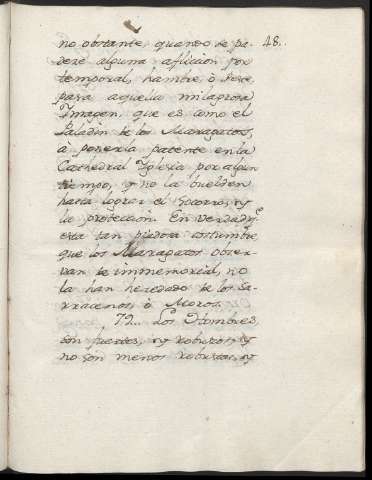 no obstante, quando se pa- 48.
deze alguna afliccion por
temporal, hambre ò Peste
para aquella milagrosa
Imagen, que es como el
Paladin de los Maragatos,
à ponerla patente en la
Cathedral Iglesia por algun
tiempo, y no la buelben
hasta lograr el Socorro, y
la proteccion. En verdad q.e
esta tan piadosa costumbre
que los Maragatos obser-
van de immemorial, no
la han heredado de los Sa-
rracenos, ò Moros.
72.. Los Hombres,
son fuertes, y robustos, y
no son menos robustas, y